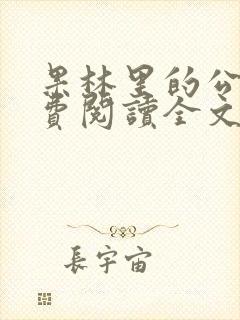 果林里的公
費閱讀全文
長宇宙